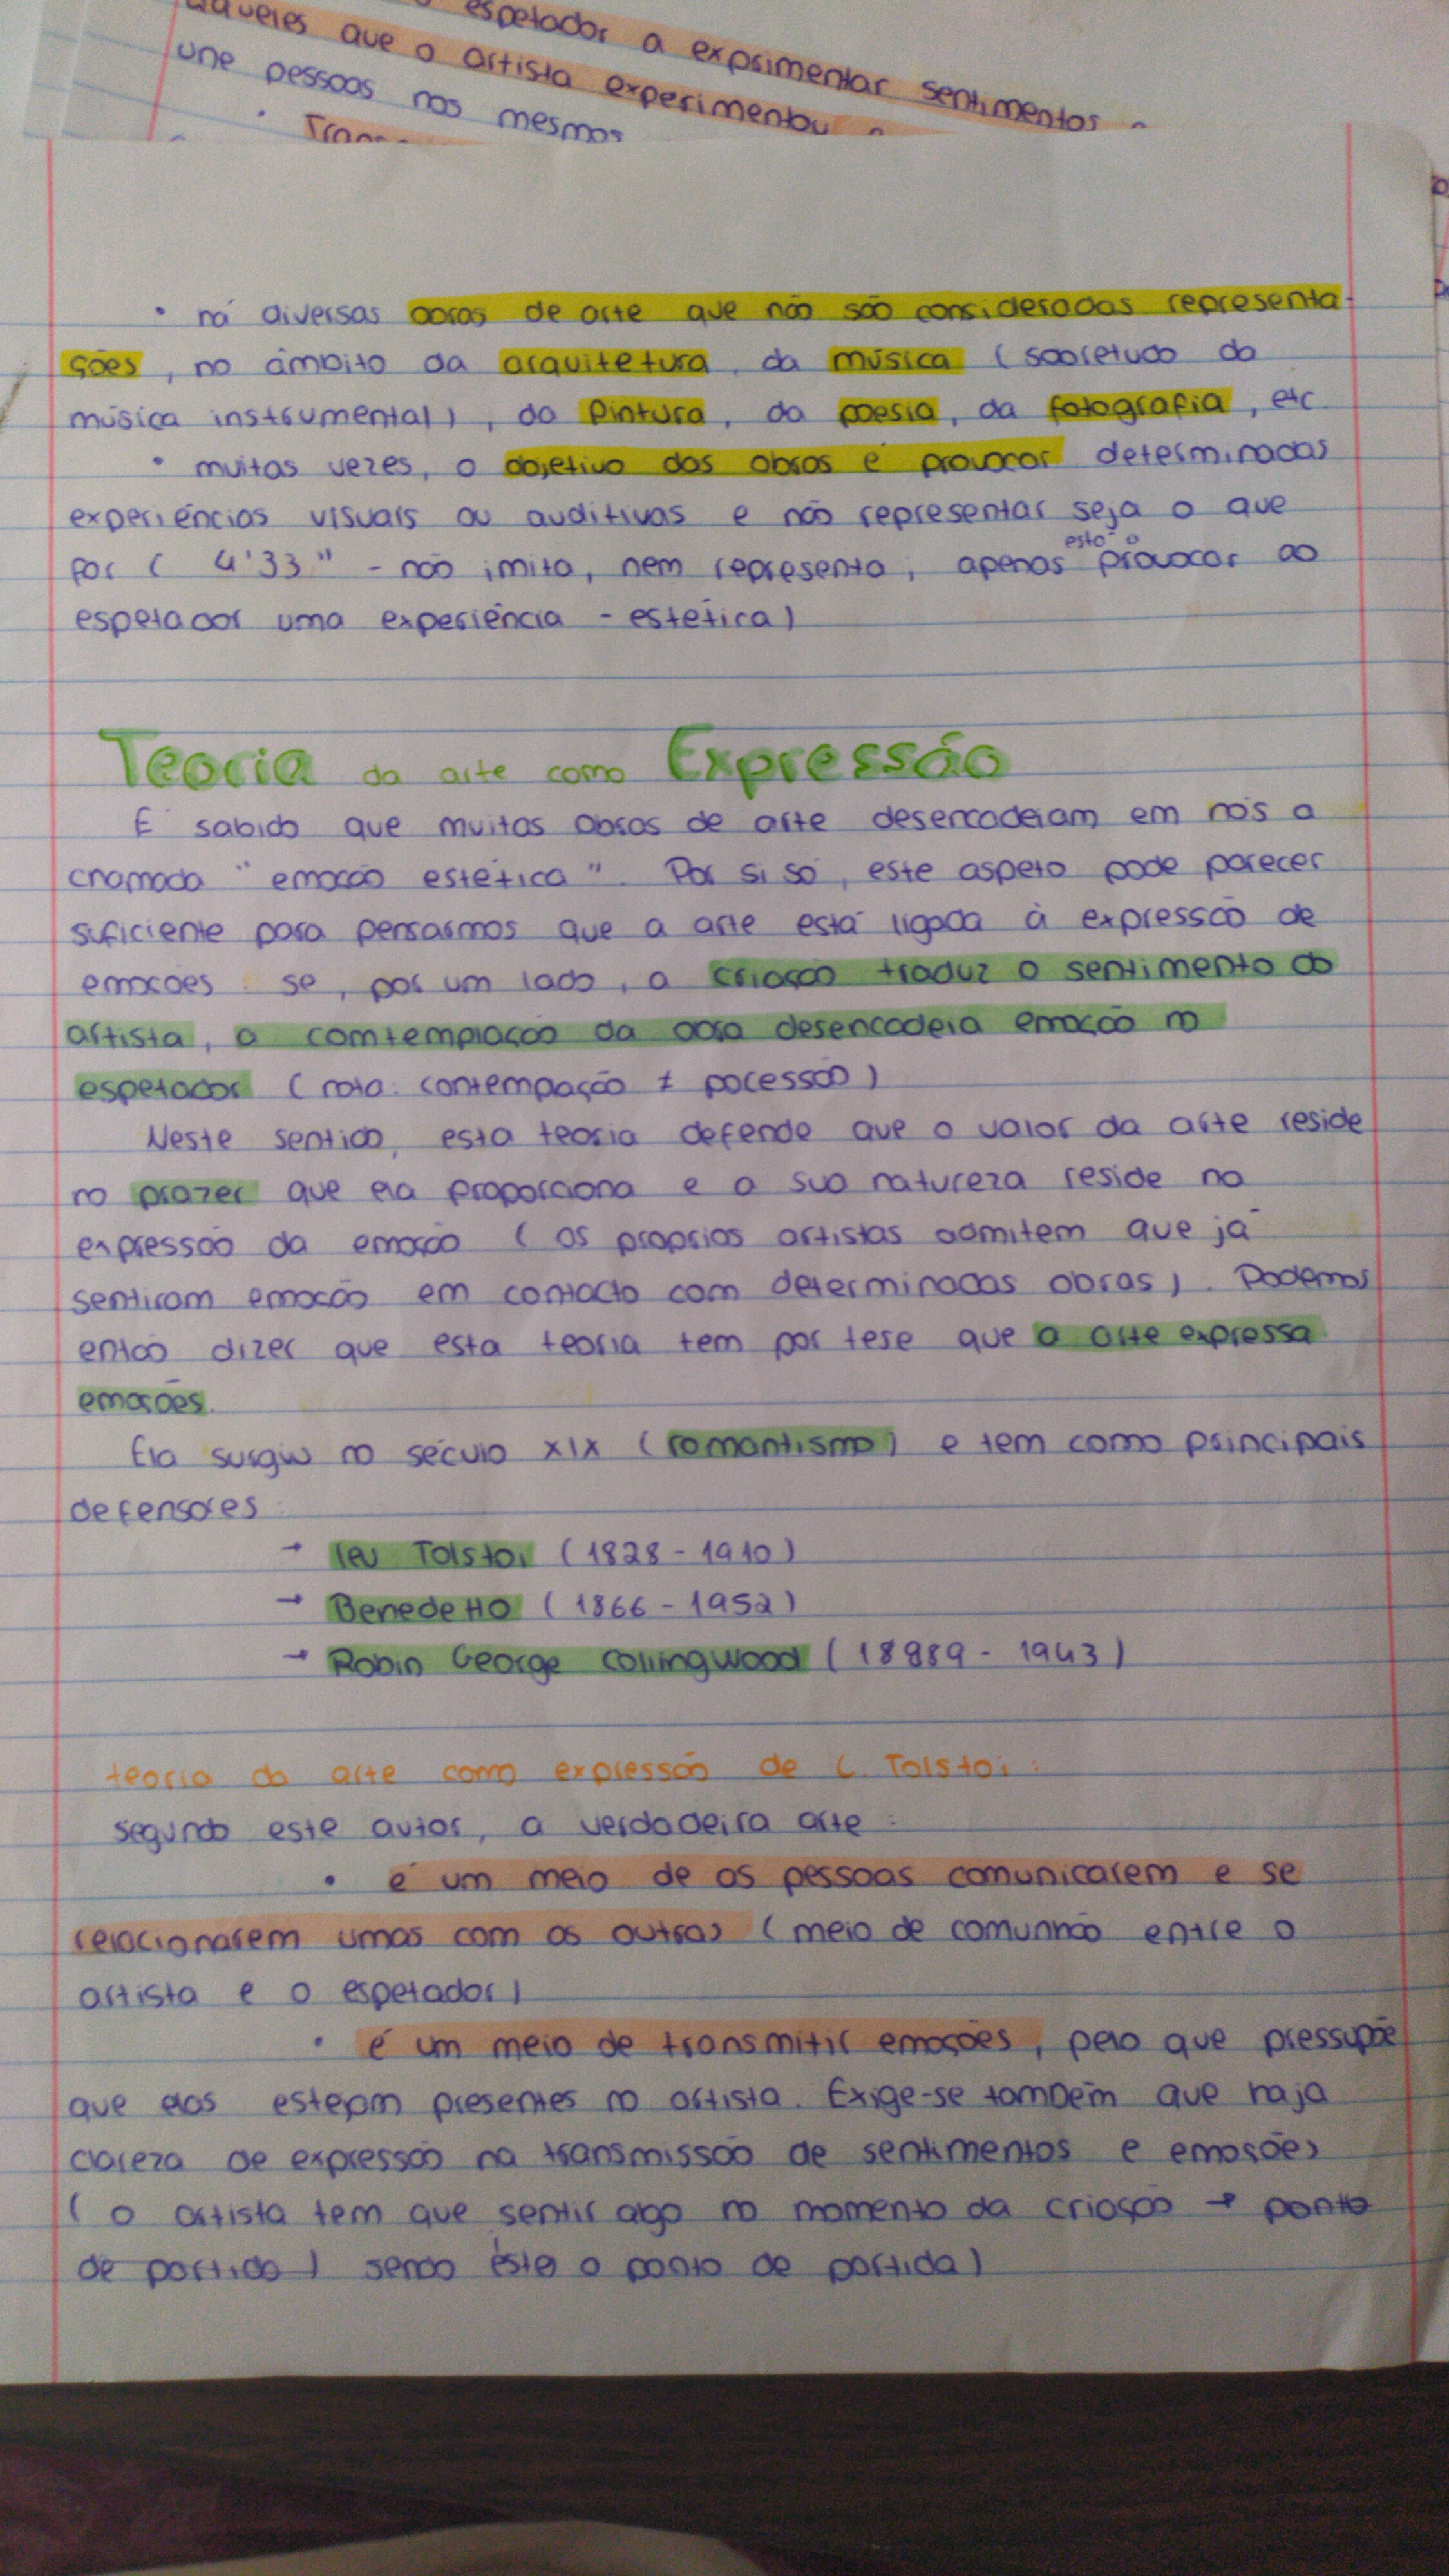 espetador a experimentar sentimentos
que o artista experimentou
une pessoas nos mesmos
• há diversas obras de arte que não são consideradas representa-
ções, no âmbito da arquitetura, da música (sobretudo da
música instrumental), da pintura, da poesia, da fotografia, etc
• muitas vezes, o objetivo das obras é provocar determinadas
experiências visuais ou auditivas e não representar seja o que
for ( 4'33" - não imita, nem representa, apenas está a provocar ao
espetador uma experiência - estética)
Teoria da arte como Expressão
É sabido que muitas obras de arte desencadeiam em nós a
chamada "emoção estética". Por si só, este aspeto pode parecer
suficiente para pensarmos que a arte está ligada à expressão de
emoções: se, por um lado, a criação traduz o sentimento do
artista, a comtemplação da obra desencadeia emoção no
espetador (nota: contempação ≠ pocessão)
Neste sentido, esta teoria defende que o valor da arte reside
no prazer que ela proporciona e a sua natureza reside na
expressão da emoção (os próprios artistas admitem que já
sentiram emoção em contacto com determinadas obras). Podemos
então dizer que esta teoria tem por tese que a arte expressa
emoções.
Ela surgiu no século XIX (romantismo) e tem como principais
defensores:
→ Leu Tolstoi (1828 - 1910)
→ Benedetto (1866 - 1952)
→ Robin George Collingwood (18889 - 1943)
teoria da arte como expressão de L. Tolstoi:
segundo este autor, a verdadeira arte:
• é um meio de as pessoas comunicarem e se
relacionarem umas com as outras (meio de comunhão entre o
artista e o espetador)
• é um meio de transmitir emoções, pelo que pressupõe
que elas estejam presentes no artista. Exige-se também que haja
clareza de expressão na transmissão de sentimentos e emoções
(o artista tem que sentir algo no momento da criação → ponto
de partida) sendo este o ponto de partida)